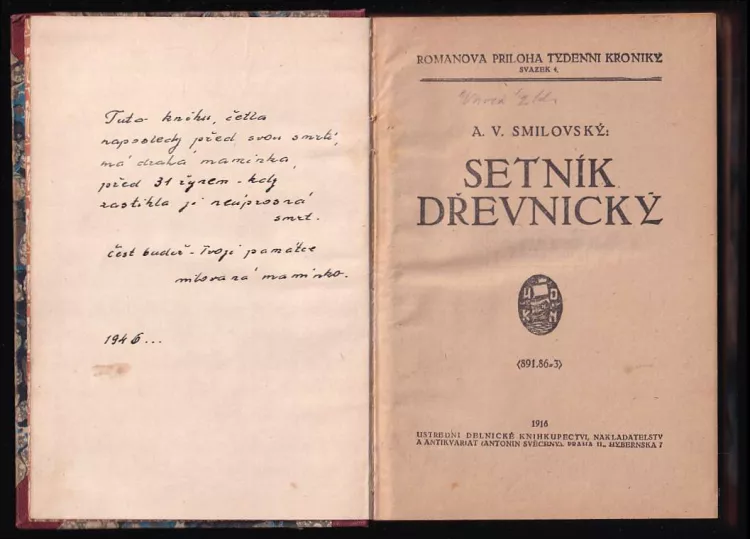 Tuto knihu, četla
naposledy před svou smrtí,
má drahá maminka,
před 31 říjnem - kdy
zastihla ji neúprosná
smrt.
čest budiž - Tvojí památce
milovaná maminko.
1946...
ROMANOVA PŘILOHA TÝDENNI KRONIKY
SVAZEK 4.
A. V. SMILOVSKÝ:
SETNÍK
DŘEVNICKÝ
U D
K N
(891.86-3)
1916
USTŘEDNI DELNICKÉ KNIHKUPECTVI, NAKLADATELSTV
A ANTIKVARIAT (ANTONIN SVĚCENY), PRAHA II., HYBERNSKA 7